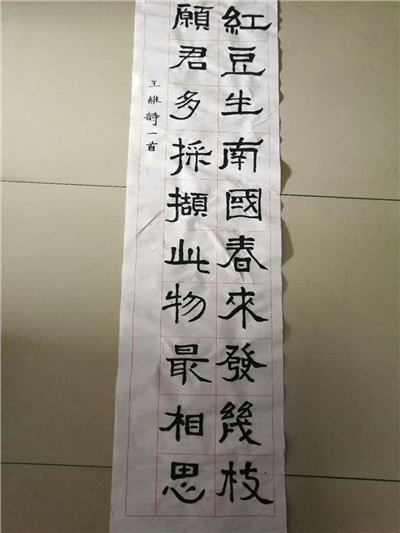 紅豆生南國春來發幾枝
願君多採擷此物最相思
王維詩一首